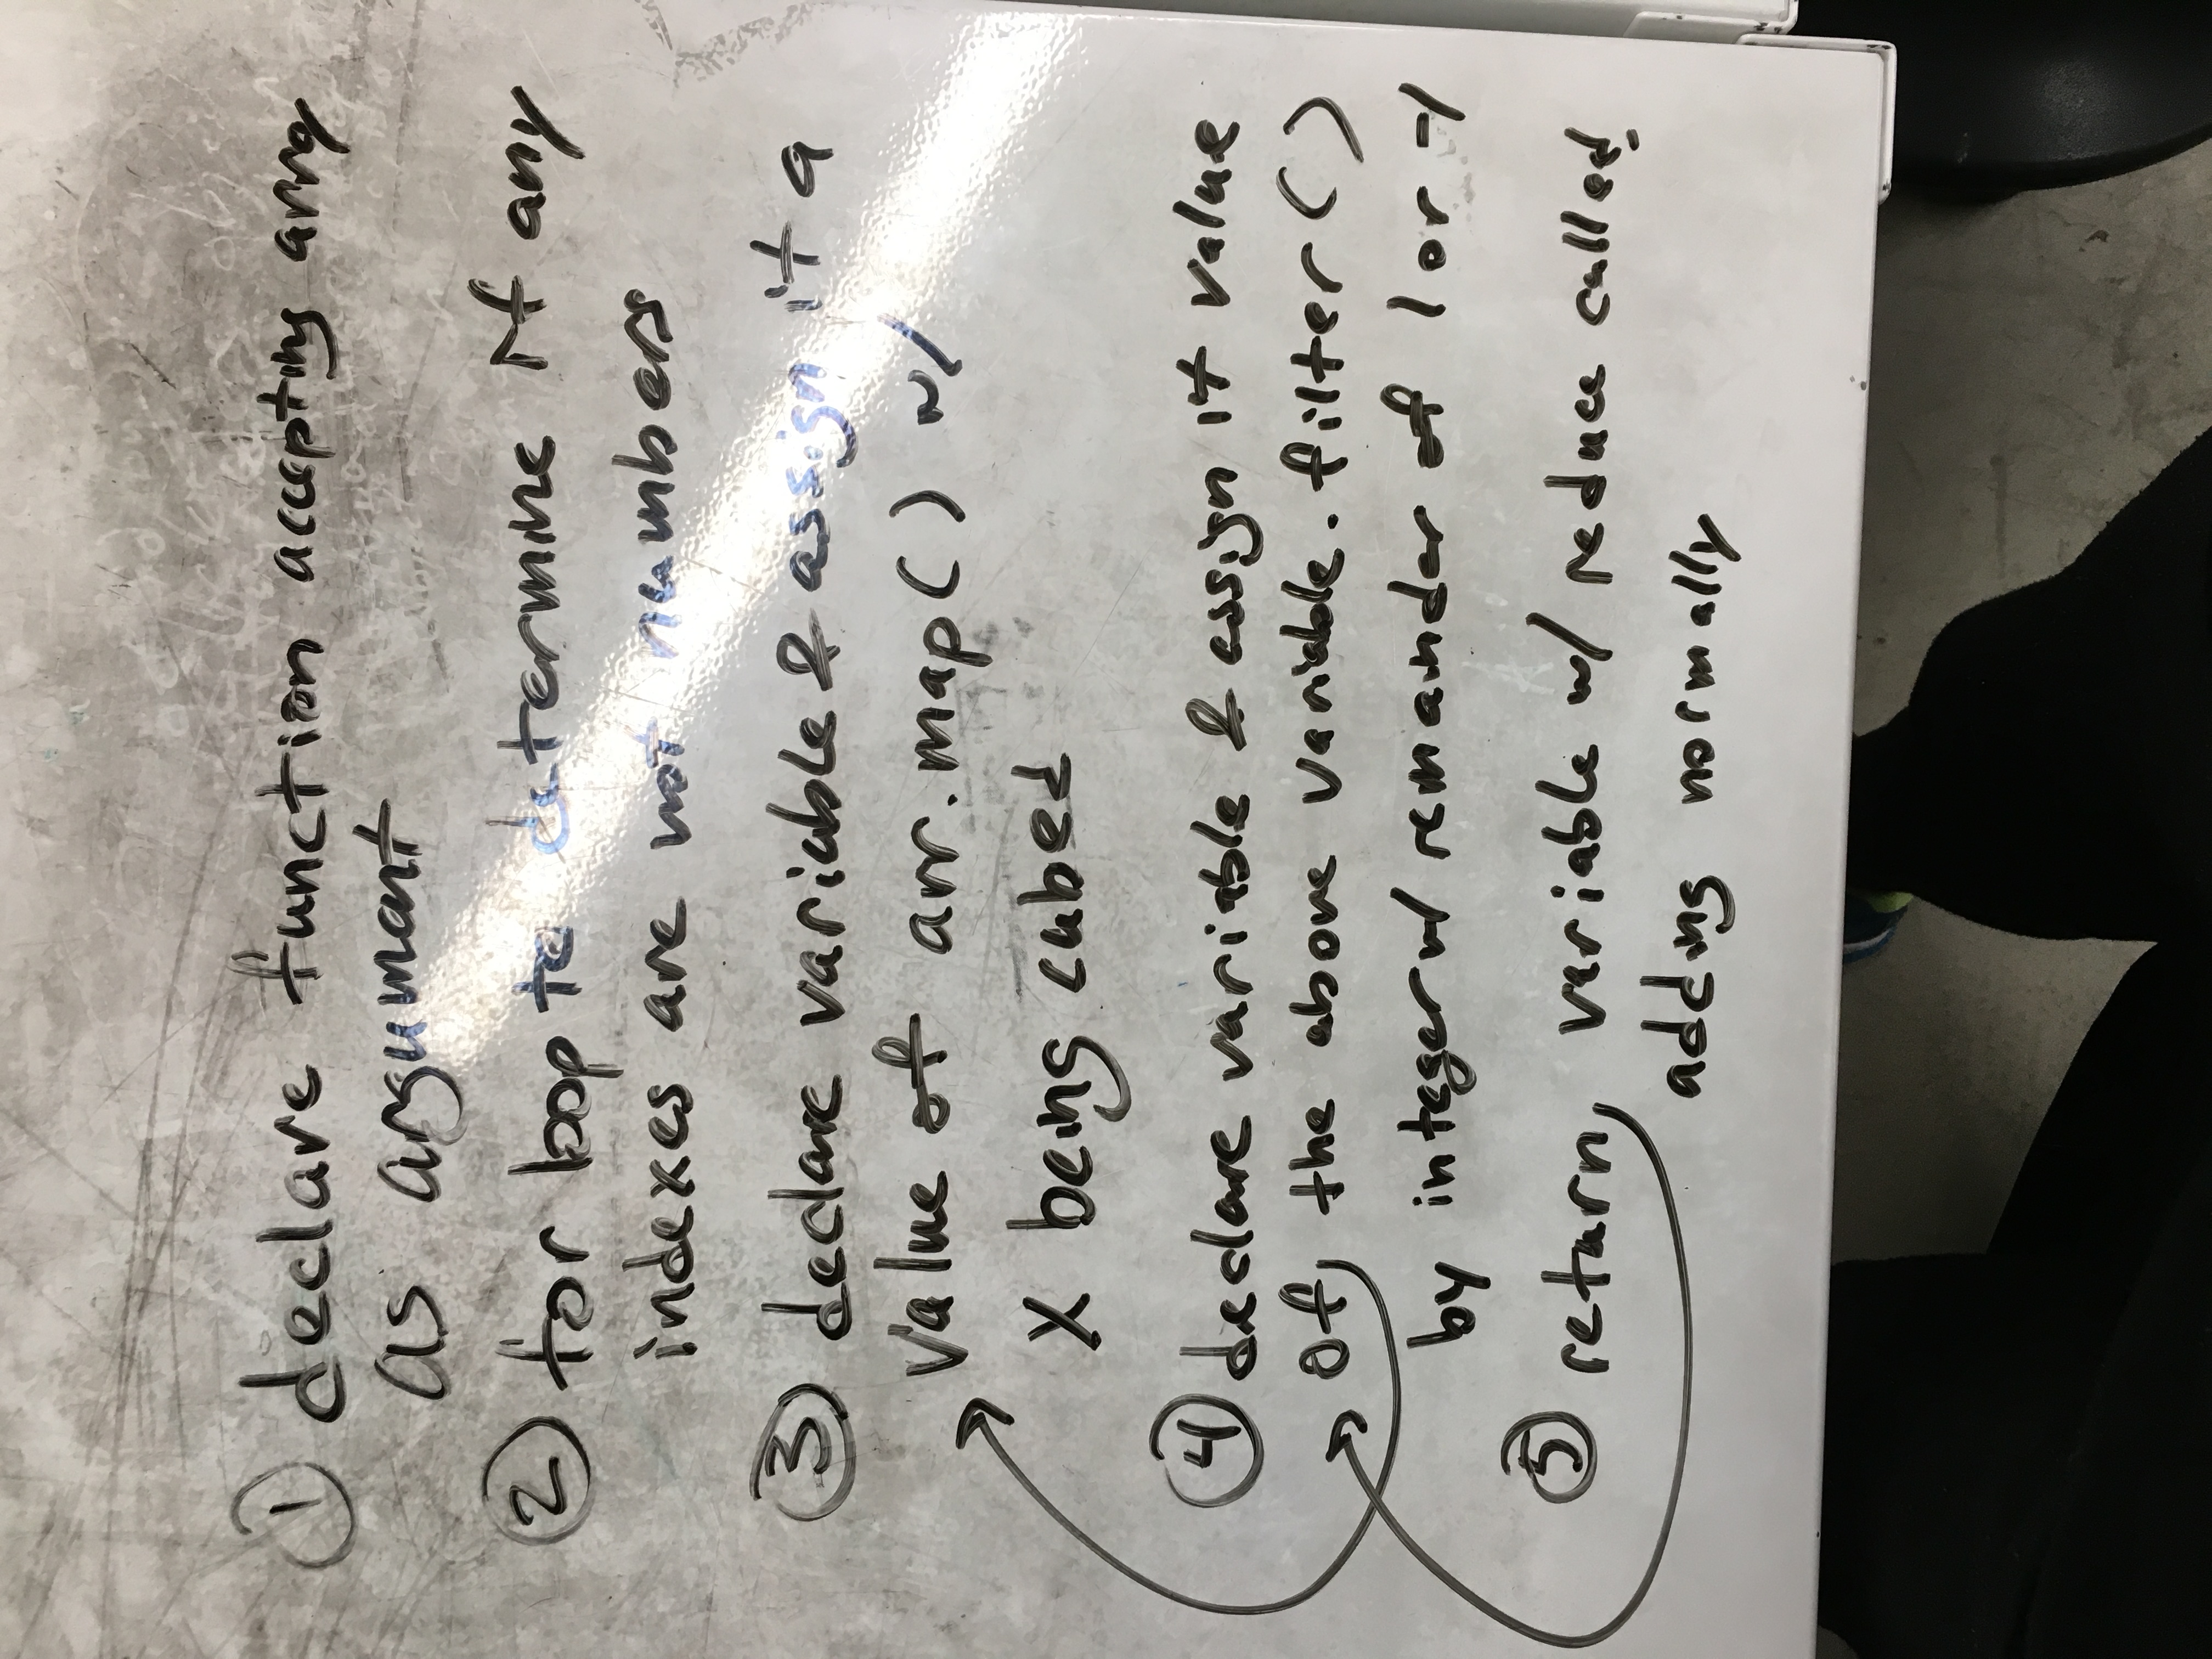 ① declare function accepting array
as argument
② for loop to determine if any
indexes are not numbers
③ declare variable & assign it a
value of arr.map() w/
x being cubed
④ declare variable & assign it value
of, the above variable.filter()
by integer w/ remainder of 1 or -1
⑤ return, variable w/ reduce called
adding normally